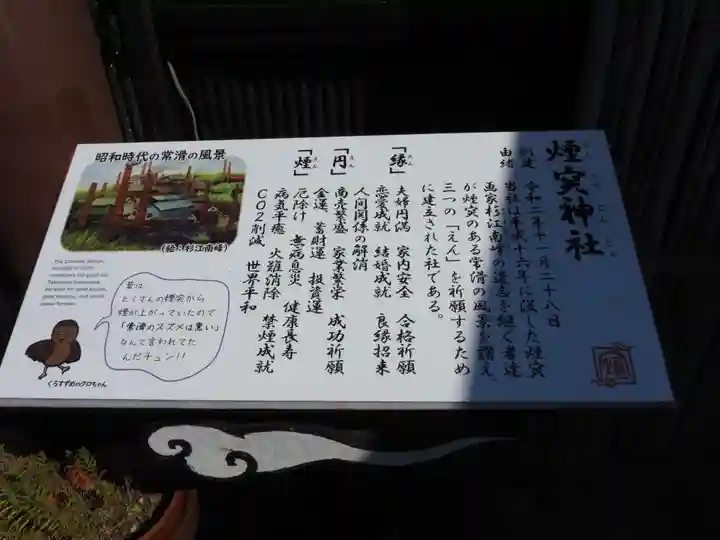 煙突神社
創建 令和二年十一月二十八日
由緒 当社は平成十六年に没した煙突
画家杉江南峰の遺志を継ぐ者達
が煙突のある常滑の風景を讃え、
三つの「えん」を祈願するため
に建立された社である。
「縁」えん
夫婦円満 家内安全 合格祈願
恋愛成就 結婚成就 良縁招来
人間関係の解消
「円」えん
商売繁盛 家業繁栄 成功祈願
金運、蓄財運、投資運
「煙」えん
厄除け 無病息災 健康長寿
病気平癒 火難消除 禁煙成就
CO2削減 世界平和
昭和時代の常滑の風景
(絵:杉江南峰)
昔は
たくさんの煙突から
煙が上がっていたので
「常滑のスズメは黒い」
なんて言われてた
んだチュン!!
くろすずめのクロちゃん